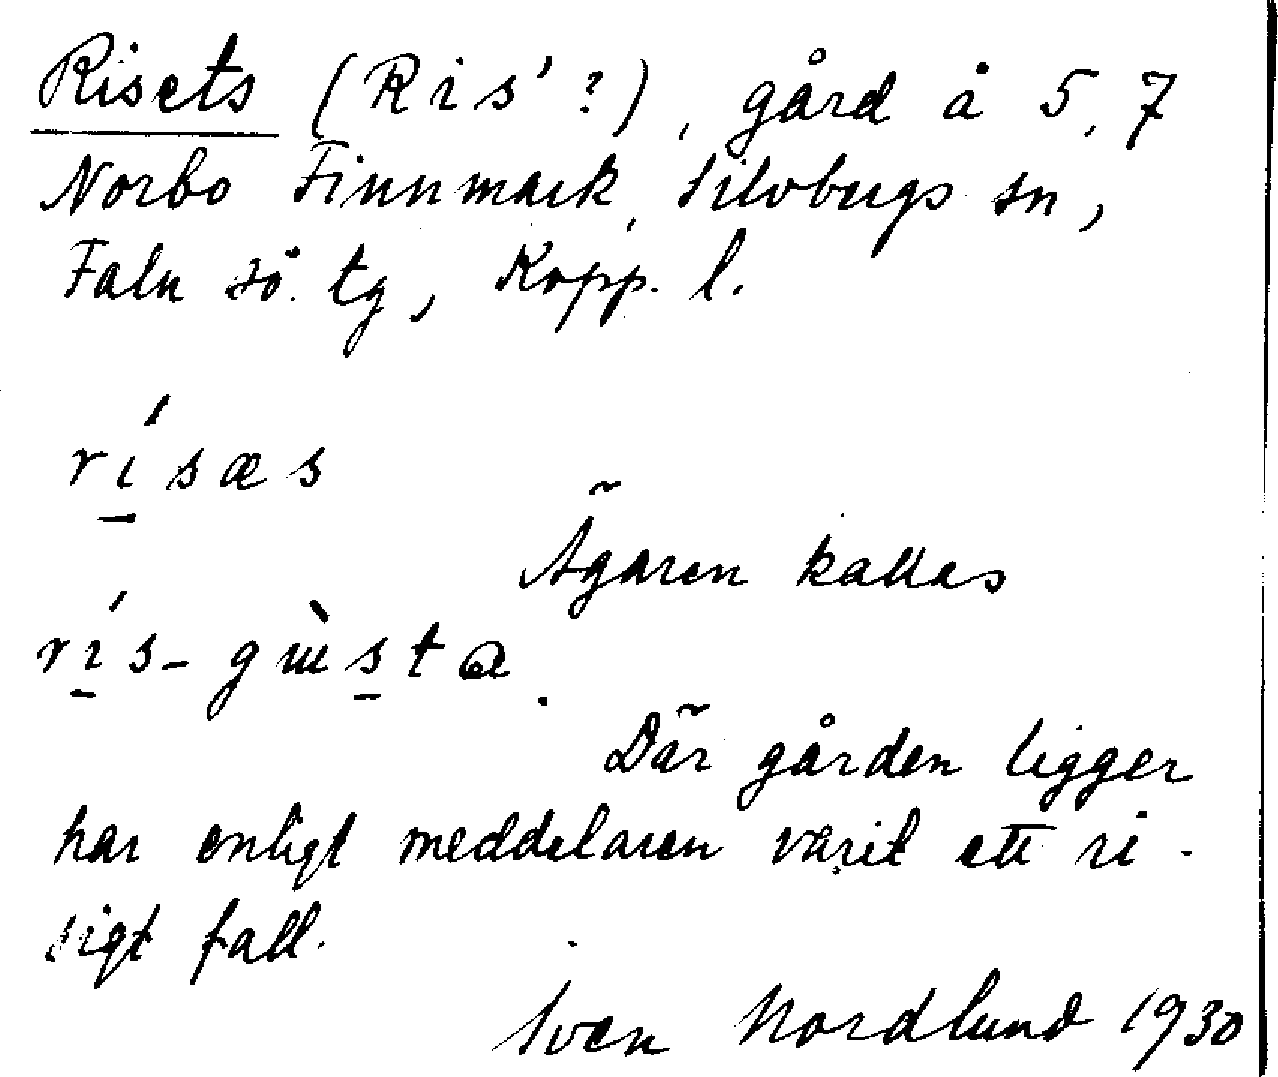 Risets (Ris' ?), gård å 5,7
Norbo Finnmark, Silvbergs sn,
Falu sö. tg, Kopp. l.
rísæs
Ägaren kallas
rís-
Där gården ligger
har enligt meddelaren varit ett ri-
sigt fall.
Sven Nordlund 1930